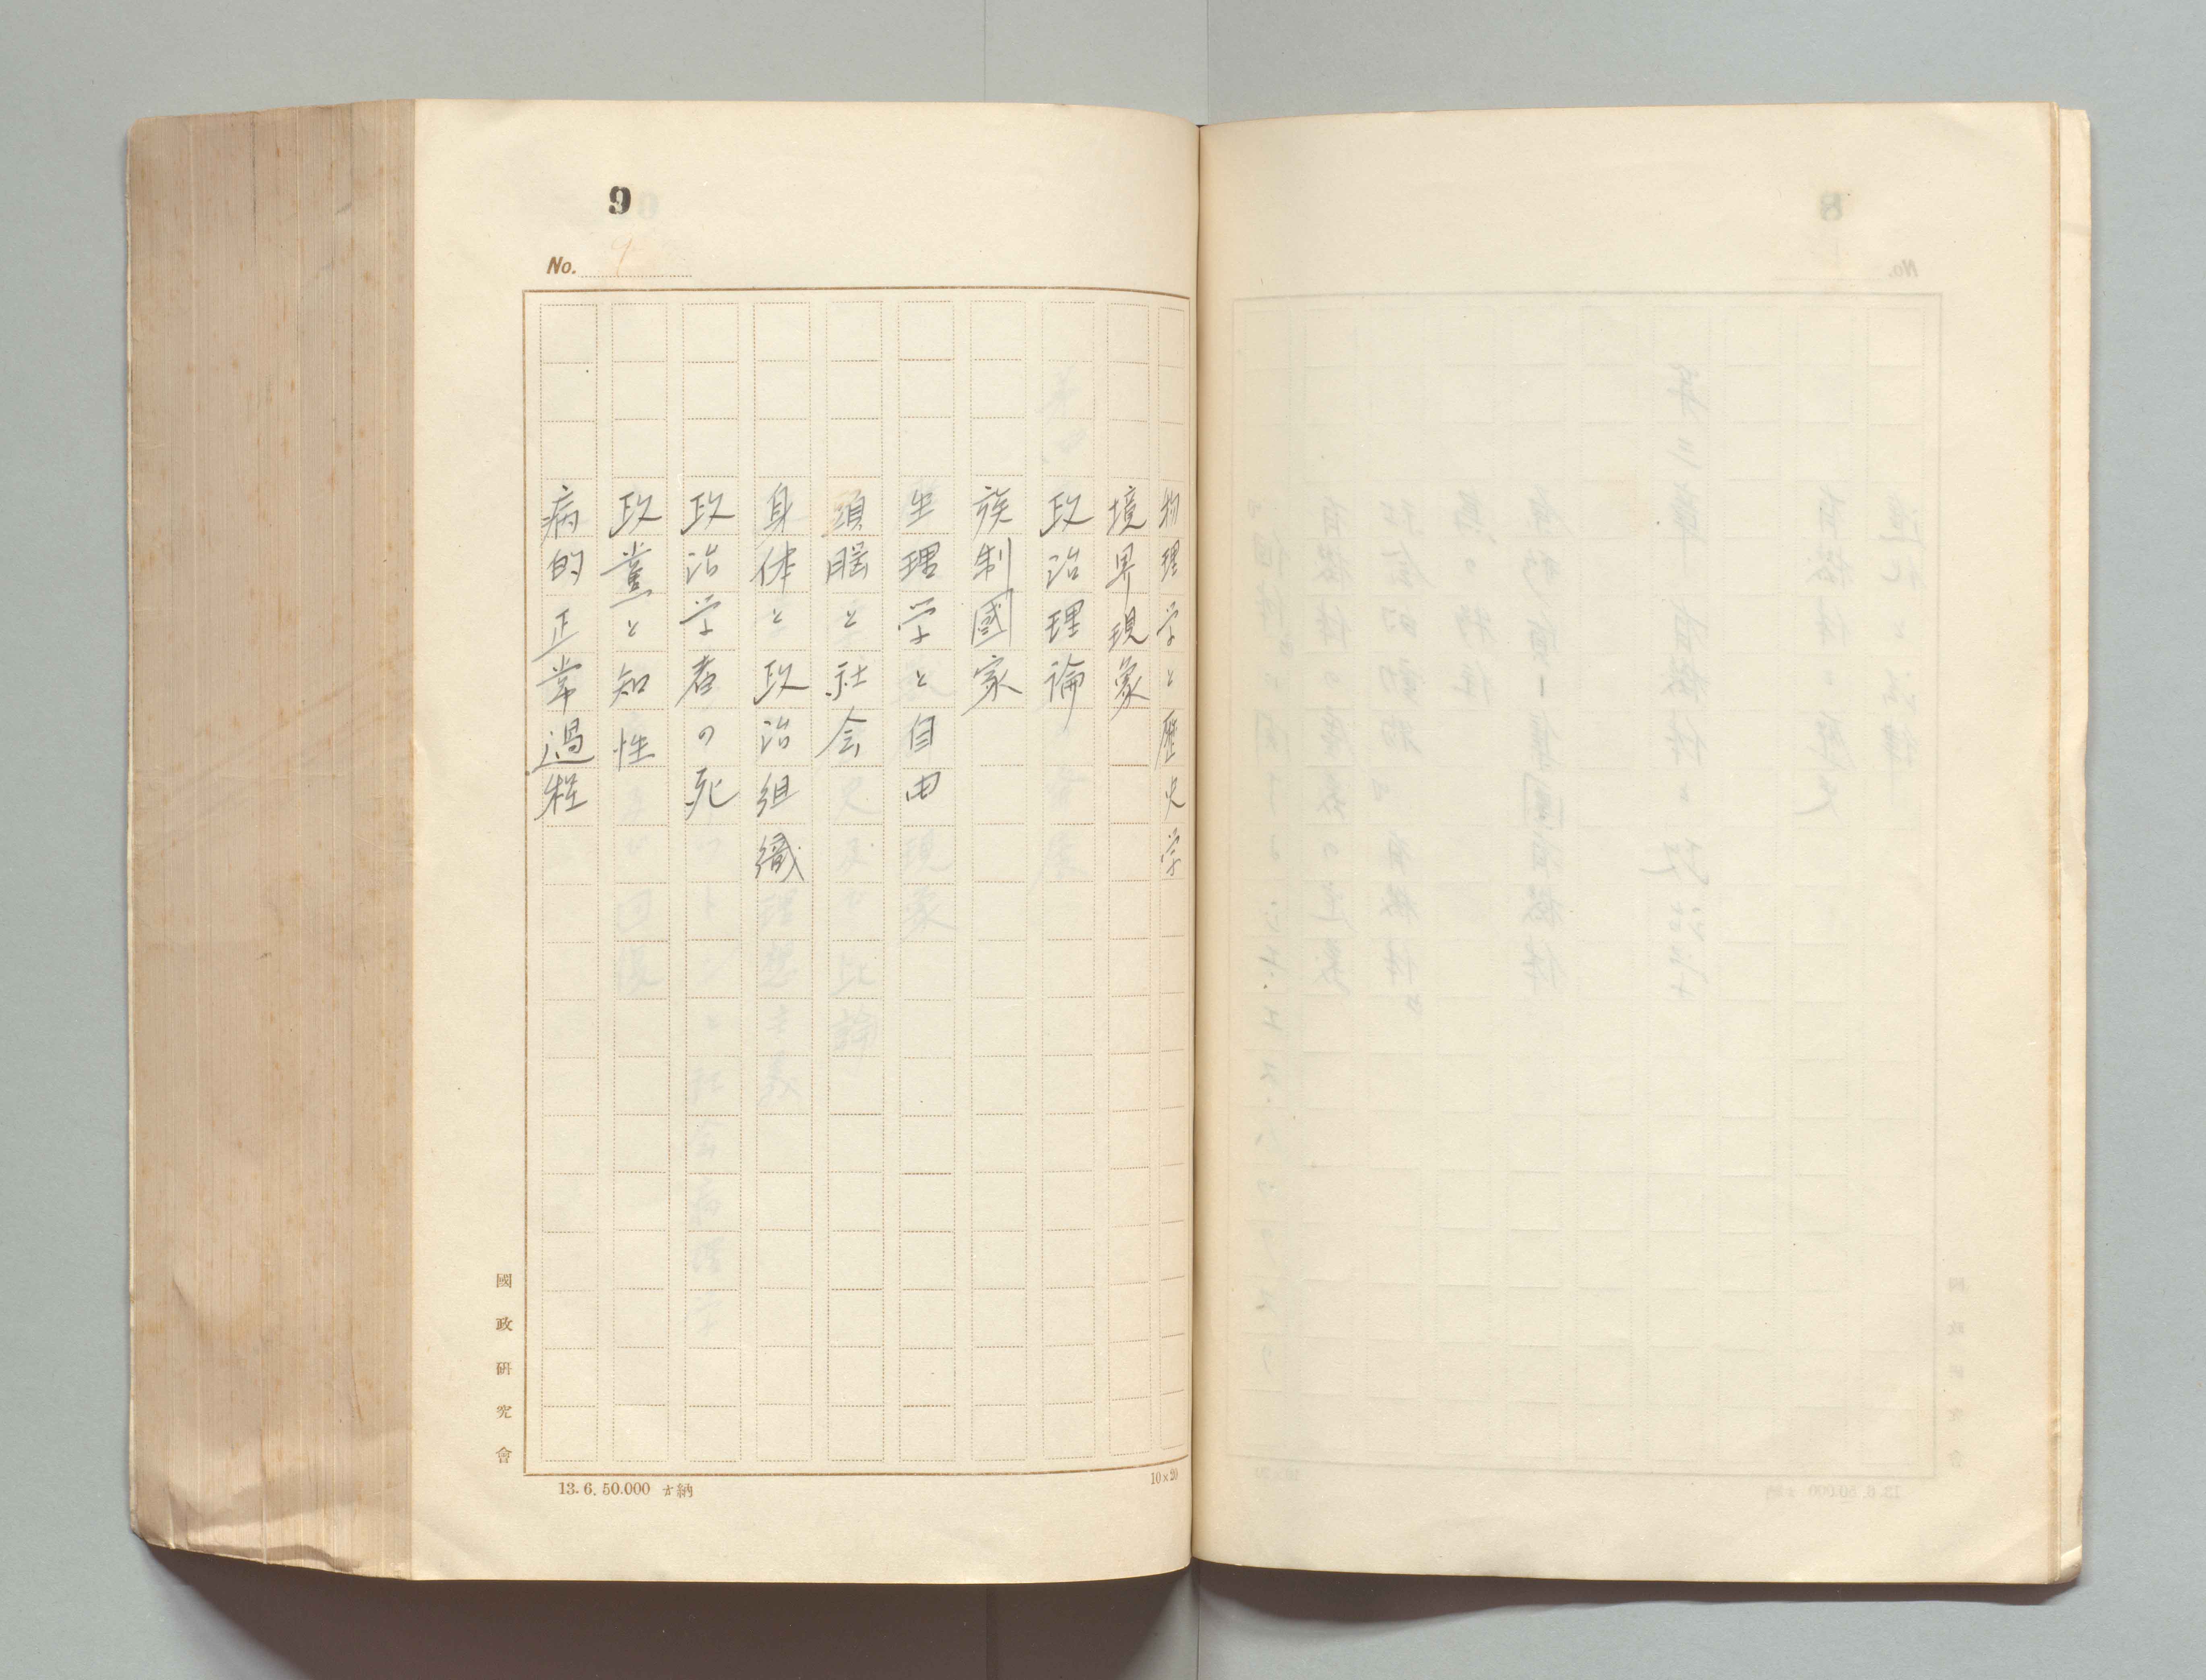 9
No. 9
物理学と歴史学
境界現象
政治理論
族制國家
生理学と自由
頭脳と社会
身体と政治組織
政治学者の死
政黨と知性
病的正常過程
國政研究會
13.6.50.000 す納
10×20